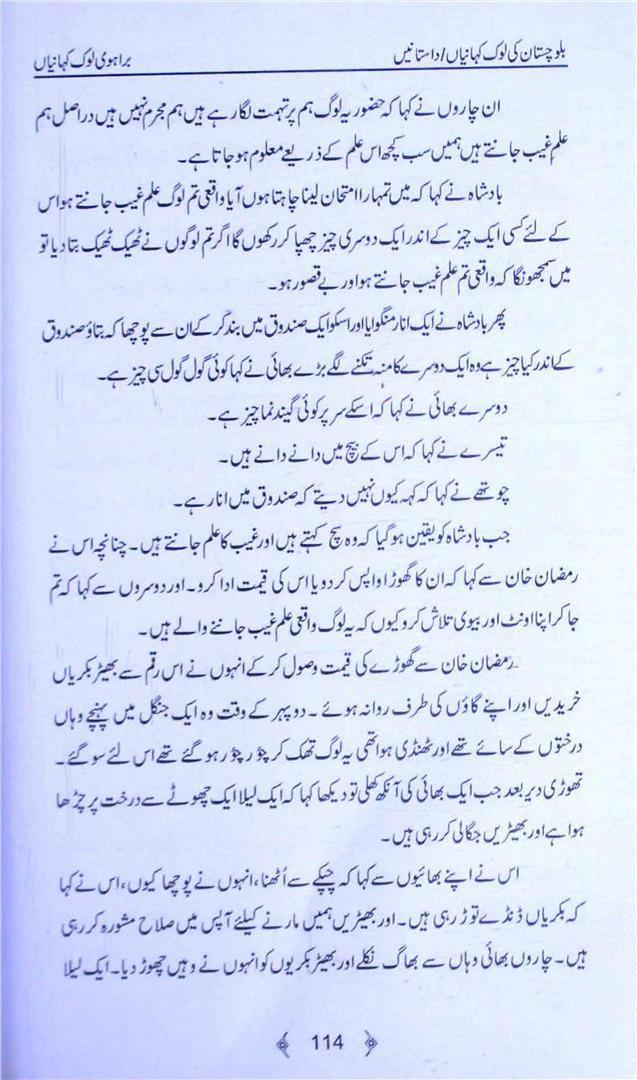 بلوچستان کی لوک کہانیاں/داستانیں
براہوی لوک کہانیاں
ان چاروں نے کہا کہ حضور یہ لوگ ہم پر تہمت لگا رہے ہیں ہم مجرم نہیں ہیں دراصل ہم
علم غیب جانتے ہیں ہمیں سب کچھ اس علم کے ذریعے معلوم ہو جاتا ہے۔
بادشاہ نے کہا کہ میں تمہارا امتحان لینا چاہتا ہوں آیا واقعی تم لوگ علم غیب جانتے ہو اس
کے لئے کسی ایک چیز کے اندر ایک دوسری چیز چھپا کر رکھوں گا اگر تم لوگوں نے ٹھیک ٹھیک بتا دیا تو
میں سمجھونگا کہ واقعی تم علم غیب جانتے ہو اور بے قصور ہو۔
پھر بادشاہ نے ایک انار منگوایا اور اسکو ایک صندوق میں بند کر کے ان سے پوچھا کہ بتاؤ صندوق
کے اندر کیا چیز ہے وہ ایک دوسرے کا منہ تکنے لگے بڑے بھائی نے کہا کوئی گول گول سی چیز ہے۔
دوسرے بھائی نے کہا کہ اسکے سر پر کوئی گیند نما چیز ہے۔
تیسرے نے کہا کہ اس کے بیچ میں دانے دانے ہیں۔
چوتھے نے کہا کہ کہہ کیوں نہیں دیتے کہ صندوق میں انار ہے۔
جب بادشاہ کو یقین ہو گیا کہ وہ سچ کہتے ہیں اور غیب کا علم جانتے ہیں۔ چنانچہ اس نے
رمضان خان سے کہا کہ ان کا گھوڑا واپس کر دو یا اس کی قیمت ادا کرو۔ اور دوسروں سے کہا کہ تم
جا کر اپنا اونٹ اور بیوی تلاش کرو کیوں کہ یہ لوگ واقعی علم غیب جاننے والے ہیں۔
رمضان خان سے گھوڑے کی قیمت وصول کر کے انہوں نے اس رقم سے بھیڑ بکریاں
خریدیں اور اپنے گاؤں کی طرف روانہ ہوئے۔ دوپہر کے وقت وہ ایک جنگل میں پہنچے وہاں
درختوں کے سائے تھے اور ٹھنڈی ہوا تھی یہ لوگ تھک کر چُور چُور ہو گئے تھے اس لئے سو گئے۔
تھوڑی دیر بعد جب ایک بھائی کی آنکھ کھلی تو دیکھا کہا کہ ایک لیلا ایک چھوٹے سے درخت پر چڑھا
ہوا ہے اور بھیڑیں جگالی کر رہی ہیں۔
اس نے اپنے بھائیوں سے کہا کہ چپکے سے اُٹھنا، انہوں نے پوچھا کیوں، اس نے کہا
کہ بکریاں ڈنڈے توڑ رہی ہیں۔ اور بھیڑیں ہمیں مارنے کیلئے آپس میں صلاح مشورہ کر رہی
ہیں۔ چاروں بھائی وہاں سے بھاگ نکلے اور بھیڑ بکریوں کو انہوں نے وہیں چھوڑ دیا۔ ایک لیلا
114